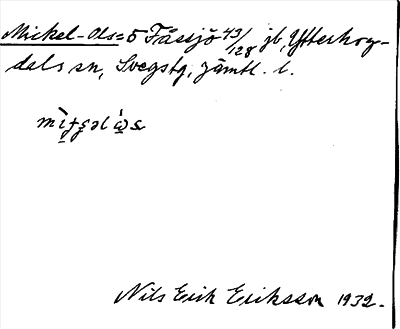 Mickel-Ols=5 Fåssjö 43/128 jb, Ytterhog-
dals sn, Svegstg, Jämtl. l.
Nils Erik Eriksson 1932.